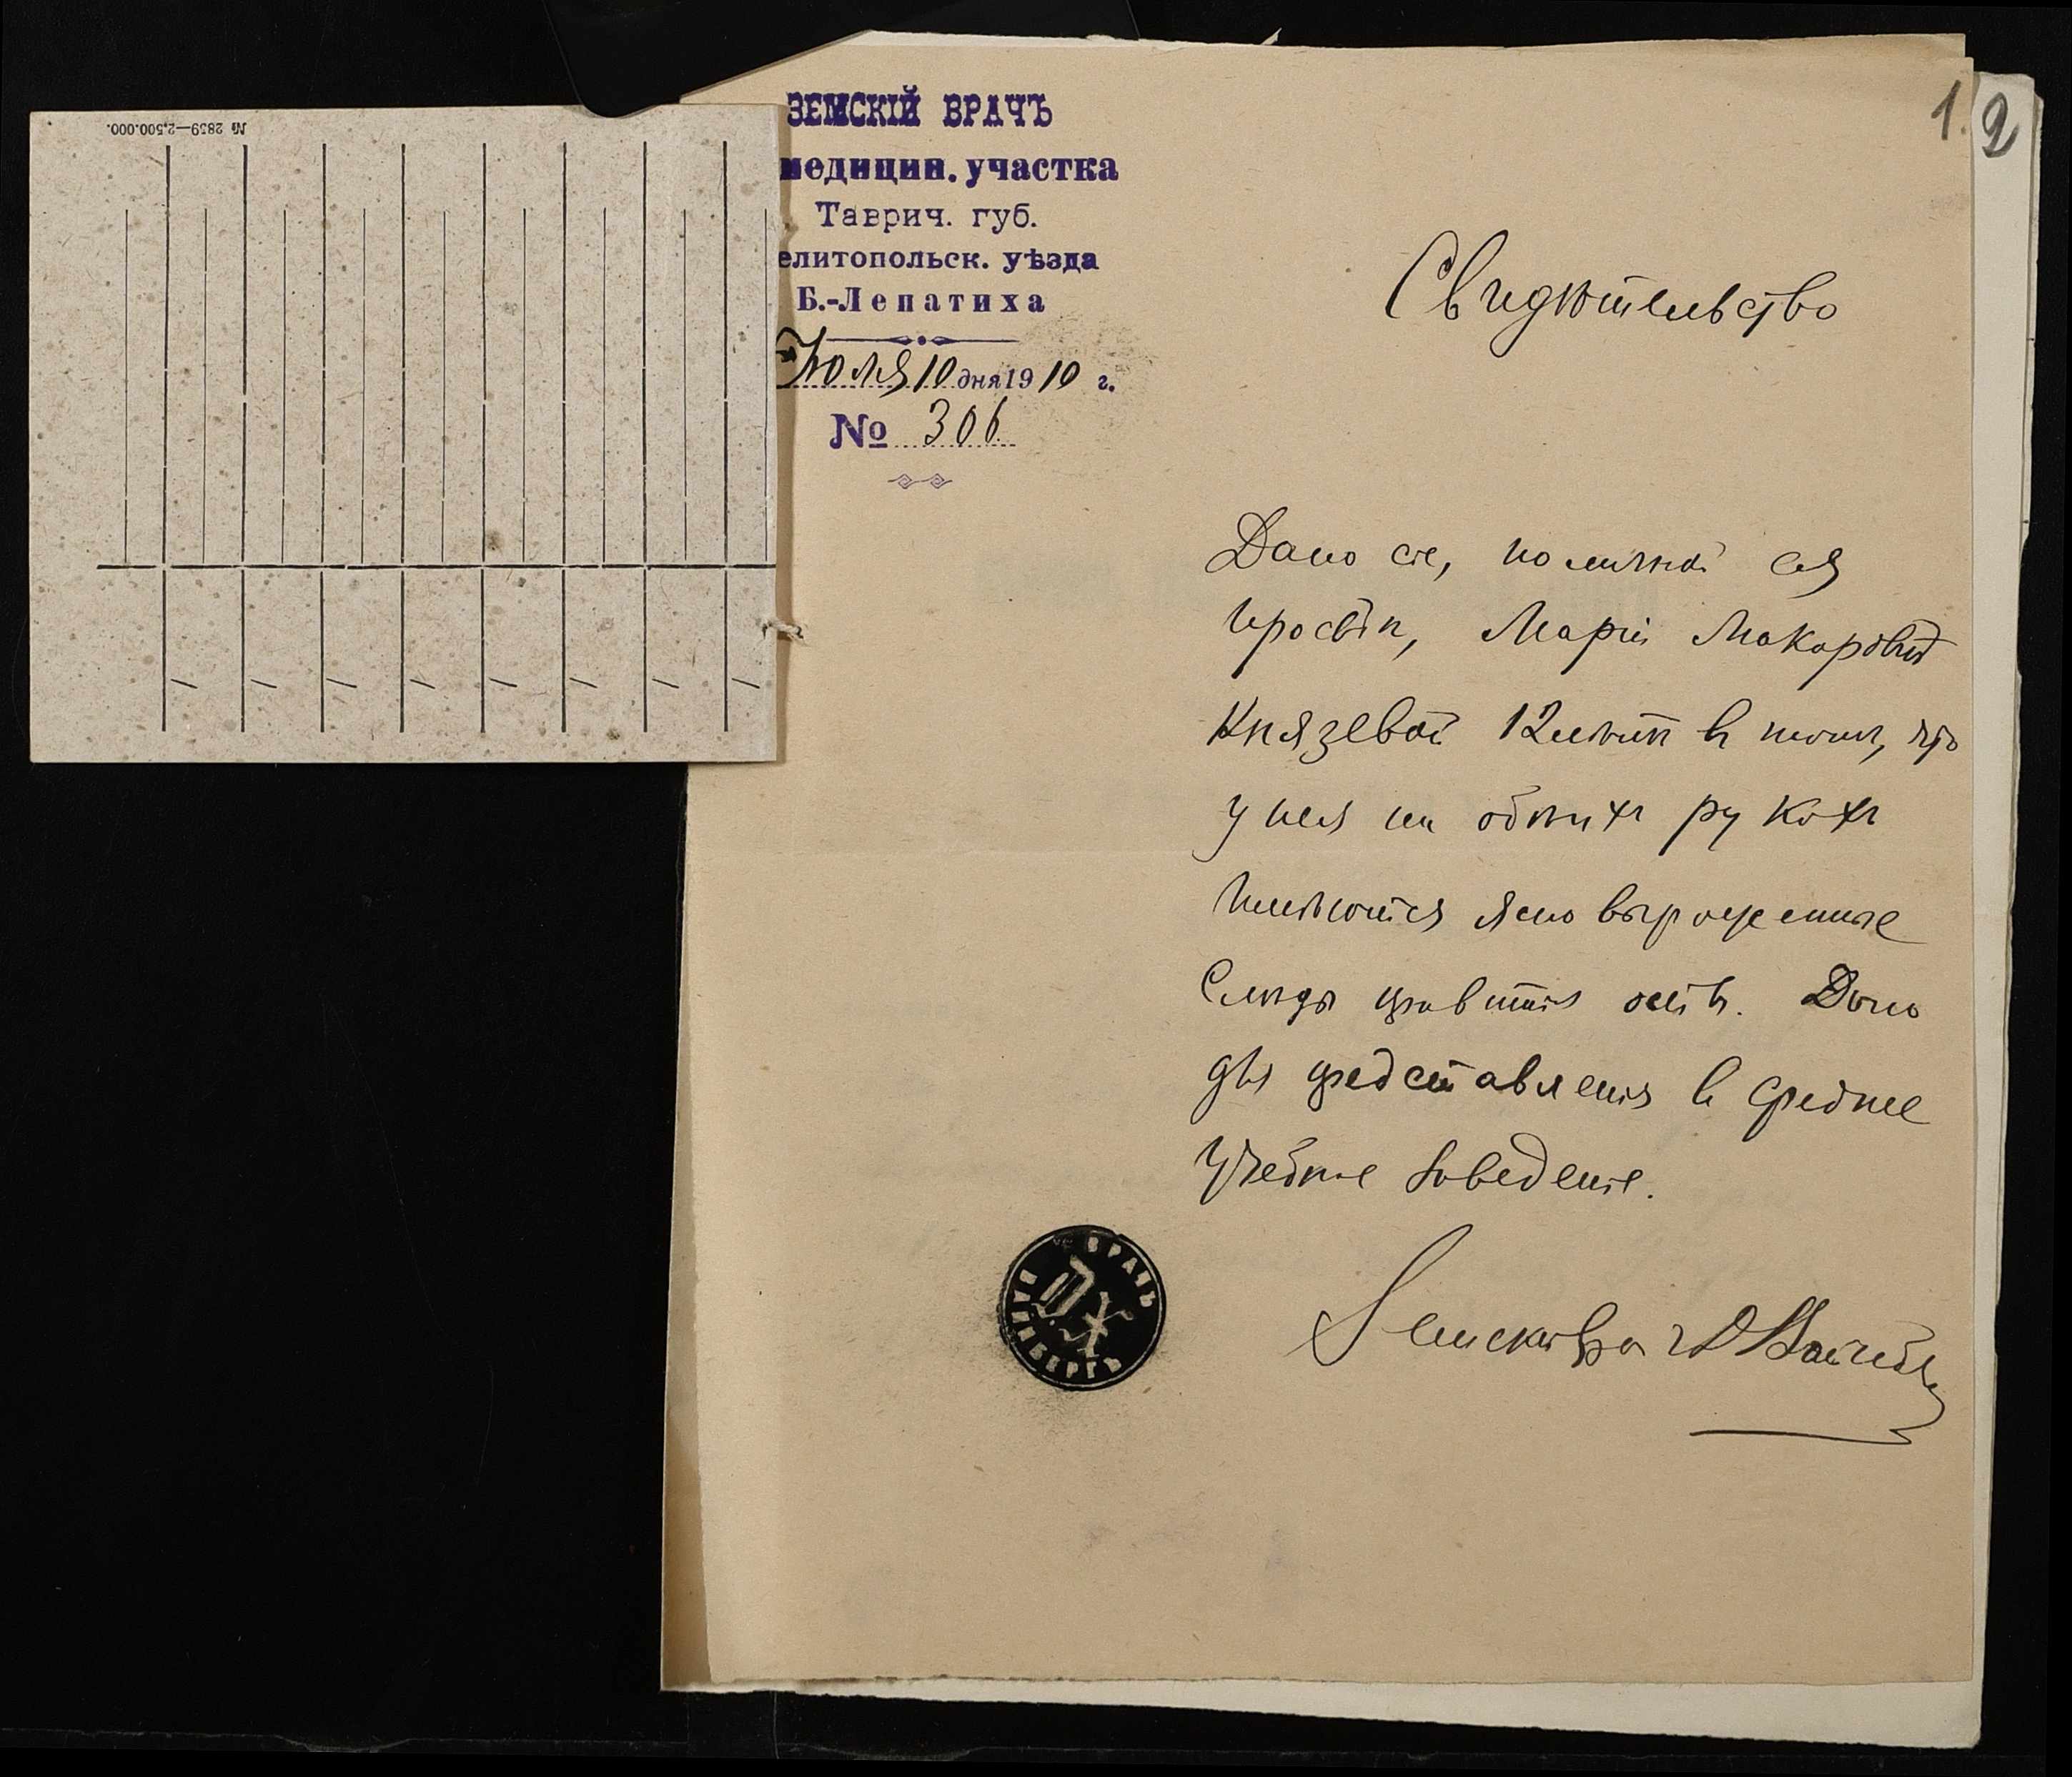 № 2859—2,500.000.
1. 2
ЗЕМСКІЙ ВРАЧЪ
медицин. участка
Таврич. губ.
елитопольск. уѣзда
Б.-Лепатиха
Іюля 10 дня 1910 г.
№ 306
Свидѣтельство
Дано сіе, по личной ея
просьбѣ, Маріи Макаровнѣ
Князевой 12 лѣтъ въ томъ, что
у нея на обѣихъ рукахъ
имѣются ясно выраженные
слѣды привитія оспы. Дано
для представленія въ среднее
учебное заведеніе.
Земскій врач Д Вайнберг
ВРАЧЪ
Д. Х.
ВАЙНБЕРГЪ